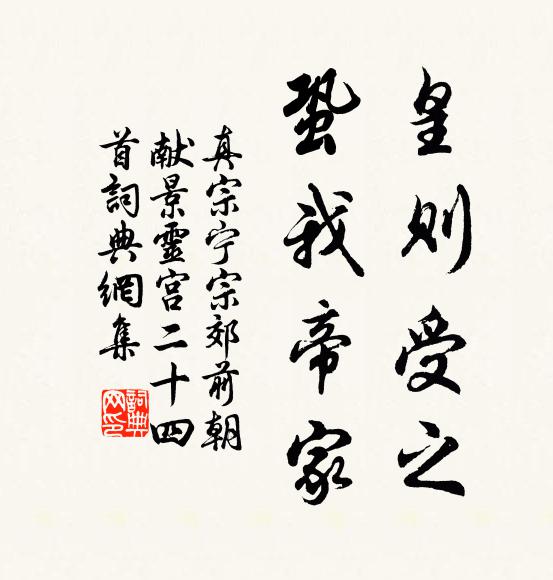 皇则受之
蛰我帝家
真宗宁宗郊前朝
献景靈宫二十四
首詞典網集
詞典网印